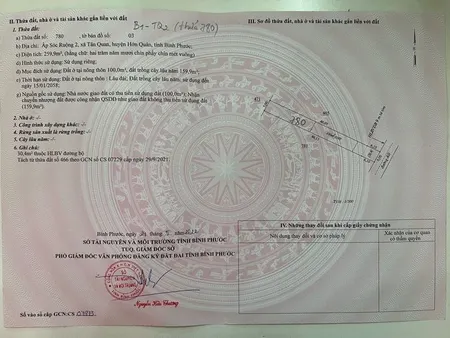 II. Thửa đất, nhà ở và tài sản khác gắn liền với đất
B1-TQ2 (thửa 780)
1. Thửa đất:
a) Thửa đất số: 780 , tờ bản đồ số: 03
b) Địa chỉ: Ấp Sóc Ruộng 2, xã Tân Quan, huyện Hớn Quản, tỉnh Bình Phước,
c) Diện tích: 259,9m², (bằng chữ: hai trăm năm mươi chín phẩy chín mét vuông),
d) Hình thức sử dụng: Sử dụng riêng,
đ) Mục đích sử dụng: Đất ở tại nông thôn 100,0m², đất trồng cây lâu năm 159,9m²,
e) Thời hạn sử dụng: Đất ở tại nông thôn : Lâu dài; Đất trồng cây lâu năm, sử dụng đến
ngày 15/01/2058;
g) Nguồn gốc sử dụng: Nhà nước giao đất có thu tiền sử dụng đất (100,0m²); Nhận
chuyển nhượng đất được công nhận QSDĐ như giao đất không thu tiền sử dụng đất
(159,9m²).
2. Nhà ở: -/-
3. Công trình xây dựng khác: -/-
4. Rừng sản xuất là rừng trồng: -/-
5. Cây lâu năm: -/-
6. Ghi chú:
30,8m² thuộc HLBV đường bộ
Tách từ thửa đất số 466 theo GCN số CS 07229 cấp ngày 29/9/2021.
III. Sơ đồ thửa đất, nhà ở và tài sản khác gắn liền với đất
780
781
Bình Phước, ngày
SỞ TÀI NGUYÊN VÀ MÔI TRƯỜNG TỈNH BÌNH PHƯỚC
TUQ. GIÁM ĐỐC SỞ
PHÓ GIÁM ĐỐC VĂN PHÒNG ĐĂNG KÝ ĐẤT ĐAI TỈNH BÌNH PHƯỚC
Nguyễn Hữu Thương
Số vào sổ cấp GCN:CS
IV. Những thay đổi sau khi cấp giấy chứng nhận
Nội dung thay đổi và cơ sở pháp lý
Xác nhận của cơ quan
có thẩm quyền